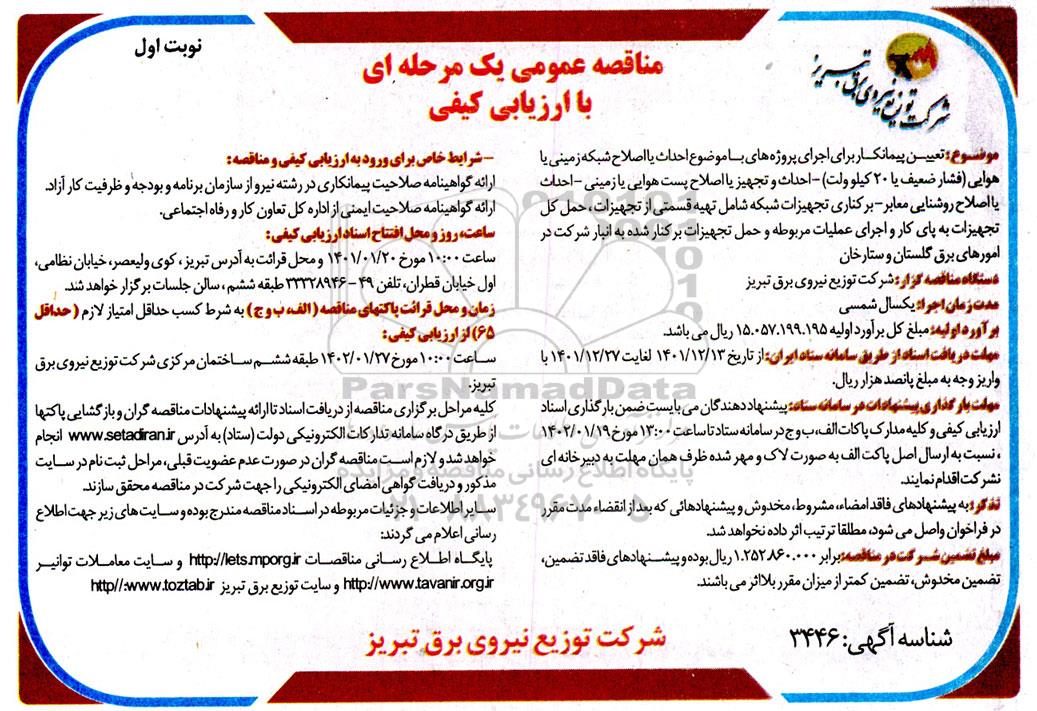 نوبت اول
شرکت توزیع نیروی برق تبریز
مناقصه عمومی یک مرحله ای
با ارزیابی کیفی
موضوع: تعیین پیمانکار برای اجرای پروژه های با موضوع احداث یا اصلاح شبکه زمینی یا
هوایی (فشار ضعیف یا ۲۰ کیلو ولت) - احداث و تجهیز یا اصلاح پست هوایی یا زمینی - احداث
یا اصلاح روشنایی معابر - برکناری تجهیزات شبکه شامل تهیه قسمتی از تجهیزات، حمل کل
تجهیزات به پای کار و اجرای عملیات مربوطه و حمل تجهیزات برکنار شده به انبار شرکت در
امورهای برق گلستان و ستارخان
دستگاه مناقصه گزار: شرکت توزیع نیروی برق تبریز
مدت زمان اجرا: یکسال شمسی
برآورد اولیه: مبلغ کل برآورد اولیه ۱۵.۰۵۷.۱۹۹.۱۹۵ ریال می باشد.
مهلت دریافت اسناد از طریق سامانه ستاد ایران: از تاریخ ۱۴۰۱/۱۲/۱۳ لغایت ۱۴۰۱/۱۲/۲۷ با
واریز وجه به مبلغ پانصد هزار ریال.
مهلت بارگذاری پیشنهادات در سامانه ستاد: پیشنهاد دهندگان می بایست ضمن بارگذاری اسناد
ارزیابی کیفی و کلیه مدارک پاکات الف، ب و ج در سامانه ستاد تا ساعت ۱۳:۰۰ مورخ ۱۴۰۲/۰۱/۱۹
، نسبت به ارسال اصل پاکت الف به صورت لاک و مهر شده ظرف همان مهلت به دبیرخانه ای
نشرکت اقدام نمایند.
تذکر: به پیشنهادهای فاقد امضاء، مشروط، مخدوش و پیشنهادهائی که بعد از انقضاء مدت مقرر
در فراخوان واصل می شود، مطلقا ترتیب اثر داده نخواهد شد.
مبلغ تضمین شرکت در مناقصه: برابر ۱.۲۵۲.۸۶۰.۰۰۰ ریال بوده و پیشنهادهای فاقد تضمین،
تضمین مخدوش، تضمین کمتر از میزان مقرر بلااثر می باشند.
- شرایط خاص برای ورود به ارزیابی کیفی و مناقصه:
ارائه گواهینامه صلاحیت پیمانکاری در رشته نیرو از سازمان برنامه و بودجه و ظرفیت کار آزاد.
ارائه گواهینامه صلاحیت ایمنی از اداره کل تعاون کار و رفاه اجتماعی.
ساعت، روز و محل افتتاح اسناد ارزیابی کیفی:
ساعت ۱۰:۰۰ مورخ ۱۴۰۱/۰۱/۲۰ و محل قرائت به آدرس تبریز، کوی ولیعصر، خیابان نظامی،
اول خیابان قطران، تلفن ۴۹ - ۳۳۳۲۸۹۴۶ طبقه ششم، سالن جلسات برگزار خواهد شد.
زمان و محل قرائت پاکتهای مناقصه (الف، ب و ج) به شرط کسب حداقل امتیاز لازم (حداقل
۶۵) از ارزیابی کیفی:
ساعت ۱۰:۰۰ مورخ ۱۴۰۲/۰۱/۲۷ طبقه ششم ساختمان مرکزی شرکت توزیع نیروی برق
تبریز.
کلیه مراحل برگزاری مناقصه از دریافت اسناد تا ارائه پیشنهادات مناقصه گران و بازگشایی پاکتها
از طریق درگاه سامانه تدارکات الکترونیکی دولت (ستاد) به آدرس www.setadiran.ir انجام
خواهد شد و لازم است مناقصه گران در صورت عدم عضویت قبلی، مراحل ثبت نام در سایت
مذکور و دریافت گواهی امضای الکترونیکی را جهت شرکت در مناقصه محقق سازند.
سایر اطلاعات و جزئیات مربوطه در اسناد مناقصه مندرج بوده و سایت های زیر جهت اطلاع
رسانی اعلام می گردند:
پایگاه اطلاع رسانی مناقصات http://iets.mporg.ir و سایت معاملات توانیر
http://www.tavanir.org.ir و سایت توزیع برق تبریز http//:www.toztab.ir
ParsNamadData
پایگاه اطلاع رسانی مناقصه و مزایده
۰۲۱-۸۸۳۴۹۶۷۰-۵
شناسه آگهی: ۳۴۴۶
شرکت توزیع نیروی برق تبریز